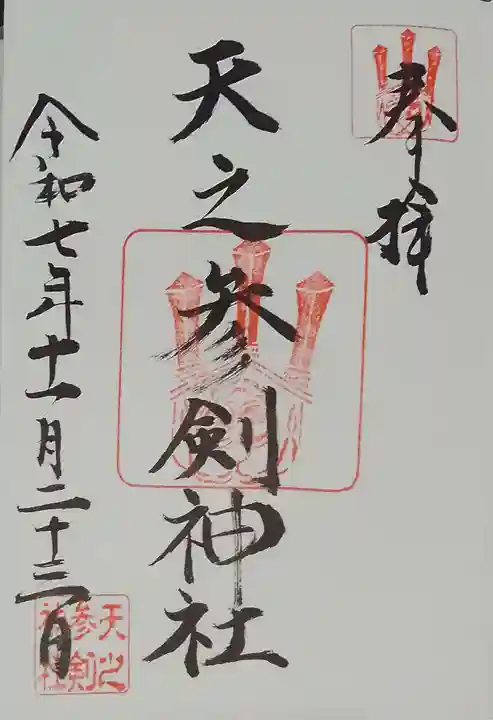 奉拝
天之参剣神社
令和七年十一月二十三日
天之
参剣
神社